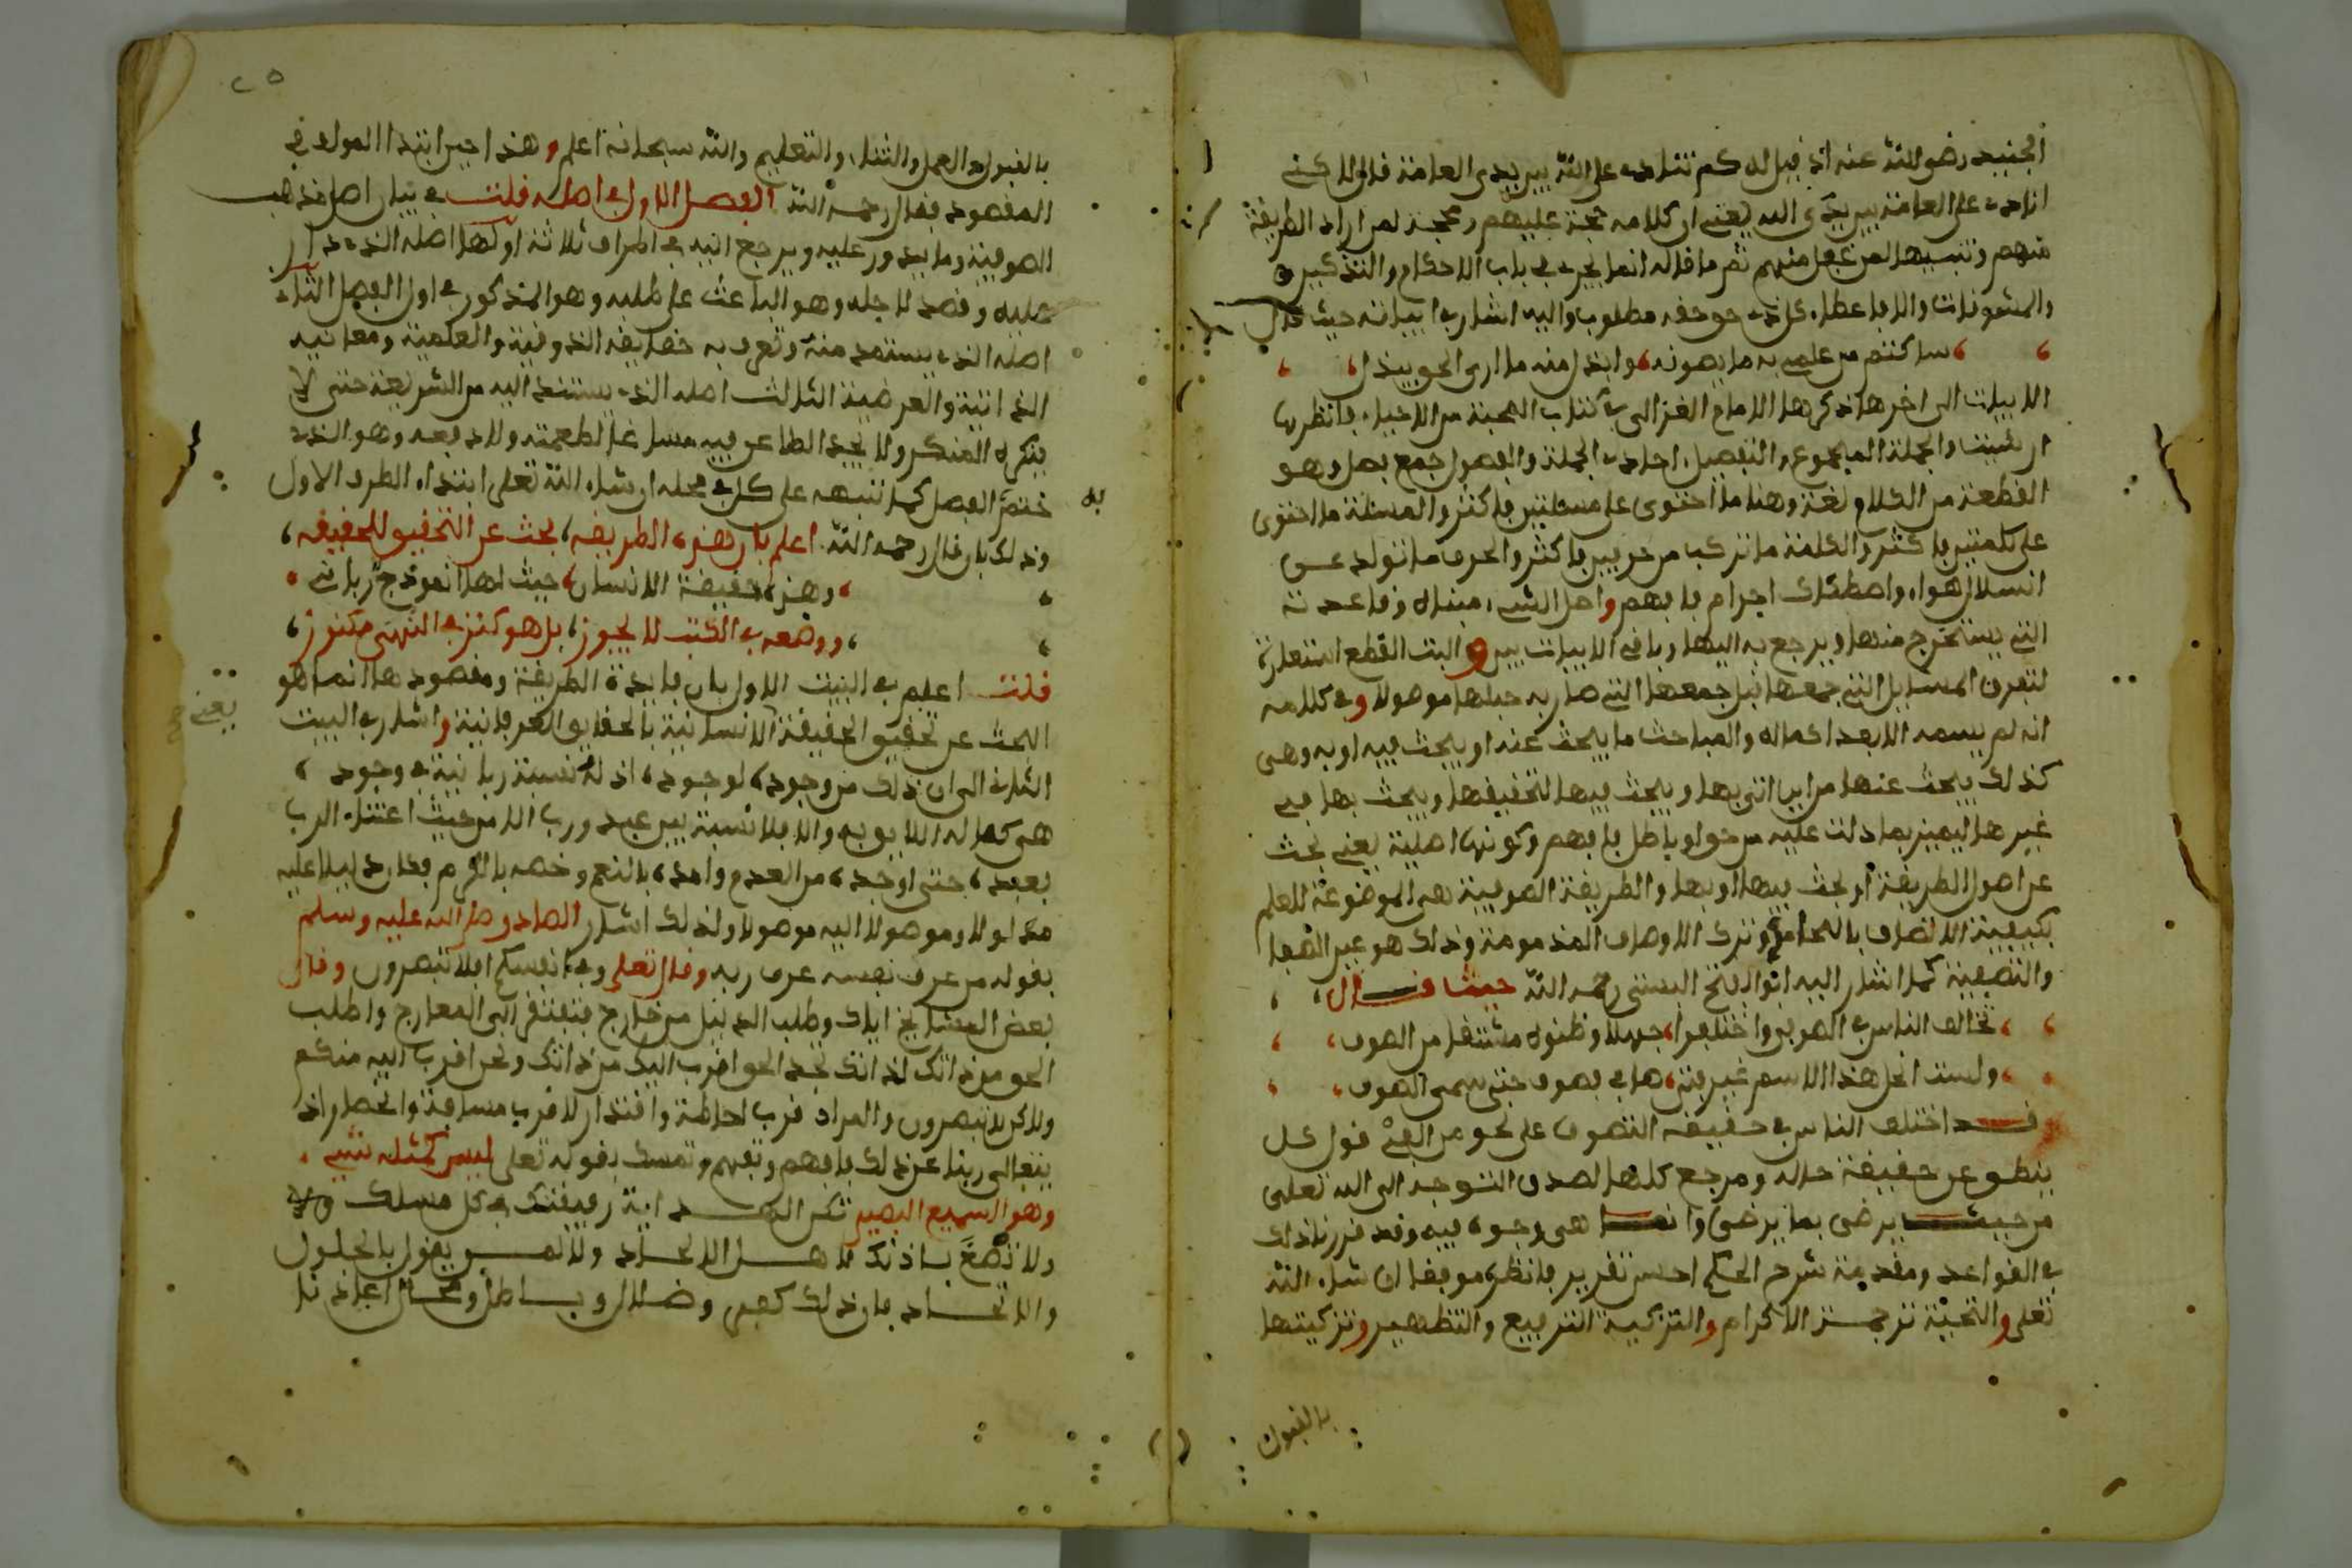 الجنيد رضي الله عنه اذ قيل له كم تنادي على الله بين يدي العامة قال لاكني
انادي على العامة بين يدي الله يعني ان كلامه حجة عليهم ومحجة لمن اراد الطريقة
منهم وتنبيها لمن غفل منهم ثم ما قاله انما يجري في باب الاحكام والتذكير
والمشوقات والا فاعطاء كل ذي حق حقه مطلوب واليه اشار في ابياته حيث قال
ساكتم من علمي به ما يصونه وابذل منه ما ارى الحق يبذل
الابيات الى اخرها ذكرها الامام الغزالي في كتاب المحبة من الاحياء فانظرها
ان شيت والجملة المجموع والتفصيل احادي الجملة والفصول جمع فصل وهو
القطعة من الكلام لغة وهنا ما احتوى على مسئلتين فاكثر والمسئلة ما احتوى
على كلمتين فاكثر والكلمة ما تركب من حرفين فاكثر والحرف ما تولد عن
انسلال هواء واصطكاك اجرام فافهم واصل الشيء مبناه وقاعدته
التي يستخرج منها ويرجع به اليها وباقي الابيات بين والبت القطع استعارة
لتفرق المسايل التي جمعها قبل جمعها التي صار به حبلها موصولا وفي كلامه
انه لم يسمه الا بعد اكماله والمباحث ما يبحث عنه او يبحث فيه او به وهي
كذلك يبحث عنها من اين اتى بها ويبحث فيها لتحقيقها ويبحث بها في
غيرها ليميز بما دلت عليه من حق او باطل فافهم وكونها اصلية يعني بحث
عن اصول الطريقة او بحث فيها او بها والطريقة الصوفية هي الموضوعة للعلم
بكيفية الاتصاف بالمحامد وترك الاوصاف المذمومة وذلك هو عين الصفا
والتصفية كما اشار اليه ابو الفتح البستي رحمه الله حيث قال
تخالف الناس في الصوفي واختلفوا جهلا وظنوه مشتقا من الصوف
ولست انحل هذا الاسم غير فتى صافى فصوفي حتى سمي الصوفي
وقد اختلف الناس في حقيقة التصوف على نحو من الفي قول كل
ينطق عن حقيقة حاله ومرجع كلها لصدق التوجه الى الله تعالى
من حيث يرضى بما يرضى وانما هي وجوه فيه وقد قررنا ذلك
في القواعد ومقدمة شرح الحكم احسن تقرير فانظره موفقا ان شاء الله
تعالى والتحية ترجمة الاكرام والتزكية الترفيع والتطهير وتزكيتها
بالقبول
٢٥
بالقبول والعمل والثناء والتعليم والله سبحانه اعلم وهذا حين ابتدا المولف في
المقصود فقال رحمه الله الفصل الاول في اصله قلت في بيان اصل مذهب
الصوفية وما يدور عليه ويرجع اليه في اطراف ثلاثة اولها اصله الذي دار
عليه وقصد لاجله وهو الباعث على طلبه وهو المذكور في اول الفصل الثاني
اصله الذي يستمد منه وتعرف به حقايقه الذوقية والعلمية ومعانيه
الذاتية والعرضية الثالث اصله الذي يستند اليه من الشريعة حتى لا
ينكره المنكر ولا يجد الطاعن فيه مساغا لطعمته ولا دفعه وهو الذي
ختم الفصل كما ننبه على كل في محله ان شاء الله تعالى ابتداء الطرف الاول
به
وذلك بان قال رحمه الله اعلم بان هذه الطريقه بحث عن التحقيق للحقيقه
وهذه حقيقة الانسان حيث لها انموذج رباني
ووضعه في الكتب لا يجوز بل هو كنز في النهى مكنوز
قلت اعلم في البيت الاول بان فايدة الطريقة ومقصودها انما هو
يعني
البحث عن تحقيق الحقيقة الانسانية بالحقايق العرفانية واشار في البيت
الثاني الى ان ذلك من وجوده لوجوده اذ له نسبة ربانية في وجوده
هي كماله اللايق به والا فلا نسبة بين عبد ورب الا من حيث اعتناء الرب
بعبده حتى اوجده من العدم وامده بالنعم وخصه بالكرم فصار دليلا عليه
مدلولا وموصولا اليه موصولا ولذلك اشار الصادق صلى الله عليه وسلم
بقوله من عرف نفسه عرف ربه وقال تعالى وفي انفسكم افلا تبصرون وقال
بعض المشايخ اياك وطلب الدليل من خارج فتفتقر الى المعارج واطلب
الحق من ذاتك لذاتك تجد الحق اقرب اليك من ذاتك ونحن اقرب اليه منكم
ولاكن لا تبصرون والمراد قرب احاطة واقتدار لا قرب مسافة وانحصار اذ
يتعالى ربنا عن ذلك فافهم وتفهم وتمسك بقوله تعالى ليس كمثله شيء
وهو السميع البصير تكن الهداية رفيقتك في كل مسلك
ولا تصغ باذنك لاهل الالحاد ولا لمن يقول بالحلول
والاتحاد فان ذلك كفر وضلال وباطل ومحال اعاذنا